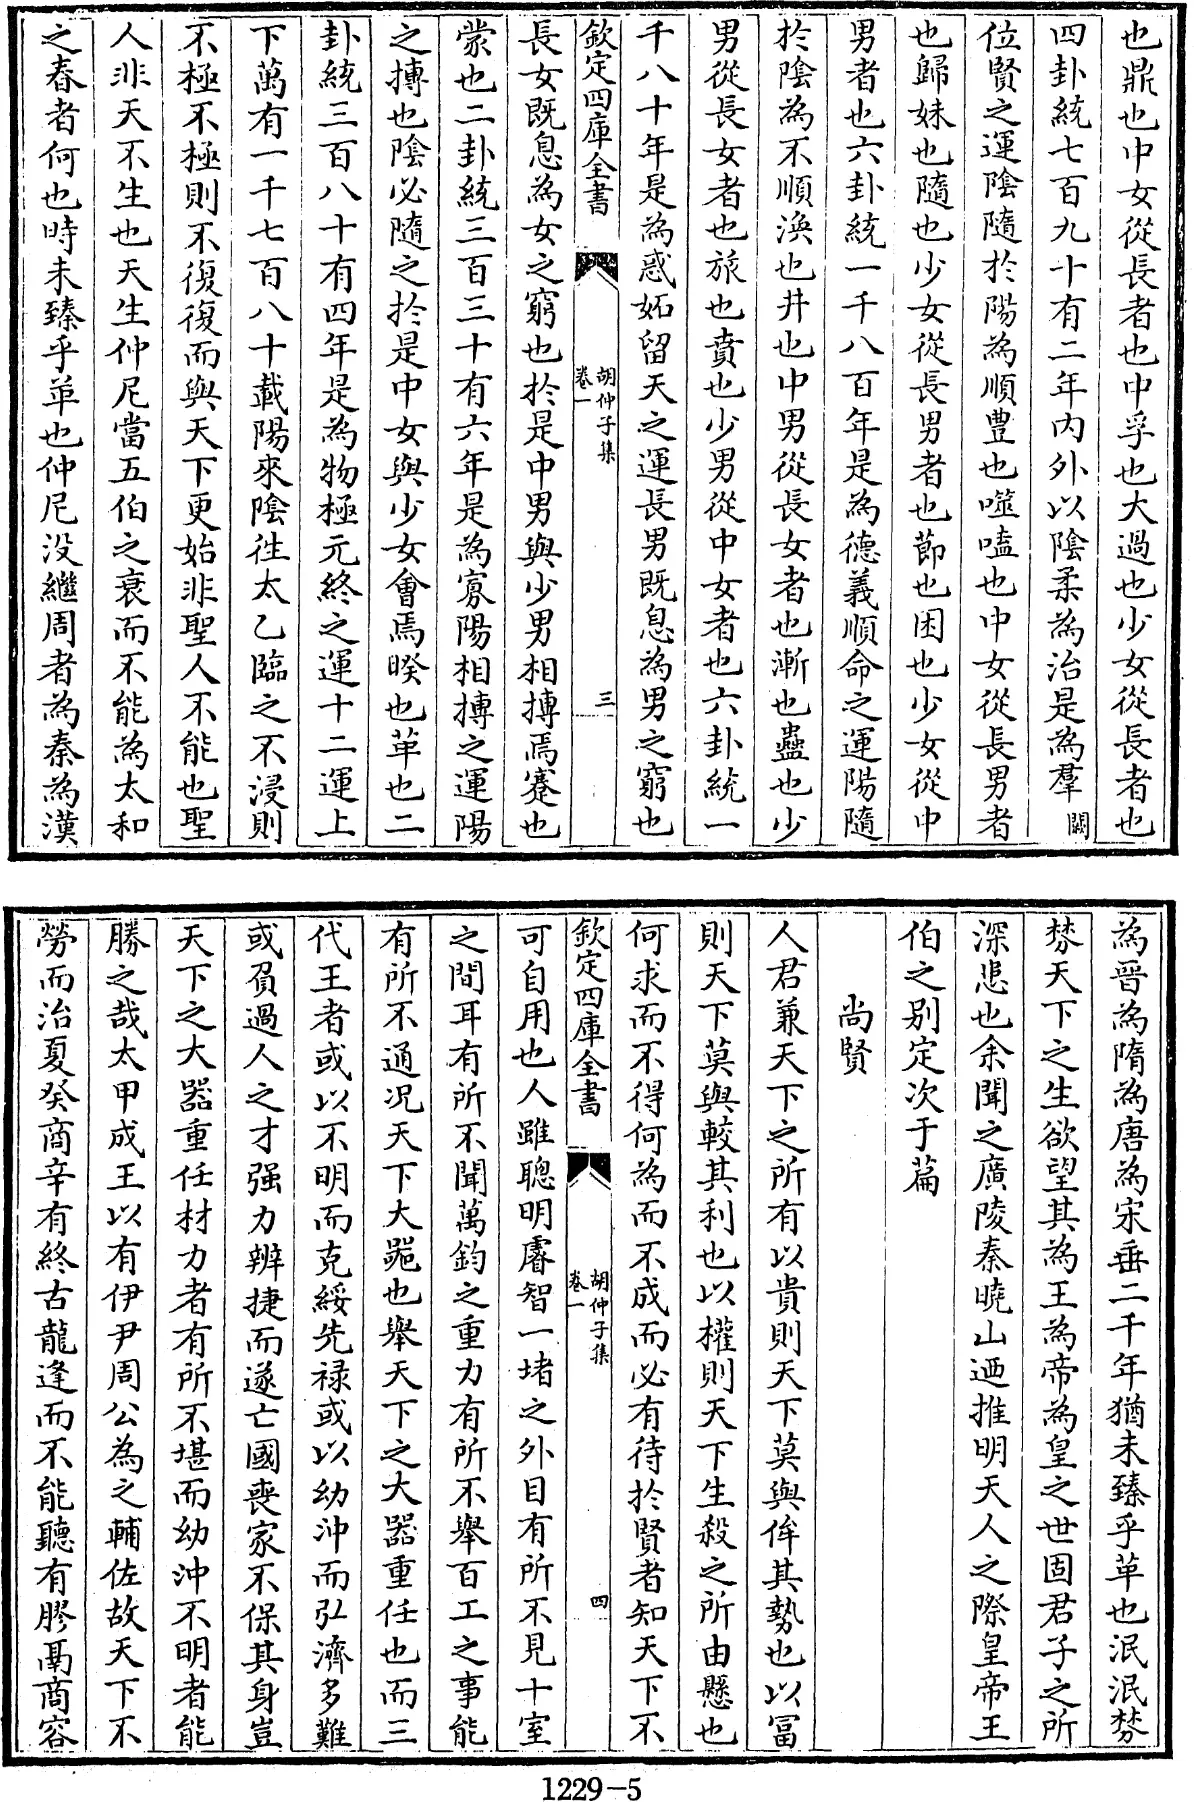 也鼎也中女從長者也中孚也大過也少女從長者也
四卦統七百九十有二年內外以陰柔為治是為羣闕
位賢之運陰隨於陽為順豊也噬嗑也中女從長男者
也歸妹也隨也少女從長男者也節也困也少女從中
男者也六卦統一千八百年是為德義順命之運陽隨
於陰為不順渙也井也中男從長女者也漸也蠱也少
男從長女者也旅也賁也少男從中女者也六卦統一
千八十年是為惑妬留天之運長男既息為男之窮也
欽定四庫全書
胡仲子集
卷一
三
長女既息為女之窮也於是中男與少男相摶焉蹇也
蒙也二卦統三百三十有六年是為寡陽相摶之運陽
之摶也陰必隨之於是中女與少女會焉暌也革也二
卦統三百八十有四年是為物極元終之運十二運上
下萬有一千七百八十載陽來陰往太乙臨之不浸則
不極不極則不復復而與天下更始非聖人不能也聖
人非天不生也天生仲尼當五伯之衰而不能為太和
之春者何也時未臻乎革也仲尼没繼周者為秦為漢
為晉為隋為唐為宋垂二千年猶未臻乎革也泯泯棼
棼天下之生欲望其為王為帝為皇之世固君子之所
深悲也余聞之廣陵秦曉山廼推明天人之際皇帝王
伯之别定次于篇
尚賢
人君兼天下之所有以貴則天下莫與侔其勢也以冨
則天下莫與較其利也以權則天下生殺之所由懸也
何求而不得何為而不成而必有待於賢者知天下不
欽定四庫全書
胡仲子集
卷一
四
可自用也人雖聰明睿智一堵之外目有所不見十室
之間耳有所不聞萬鈞之重力有所不舉百工之事能
有所不通况天下大器也舉天下之大器重任也而三
代王者或以不明而克綏先禄或以幼沖而弘濟多難
或負過人之才强力辨捷而遂亡國喪家不保其身豈
天下之大器重任材力者有所不堪而幼沖不明者能
勝之哉太甲成王以有伊尹周公為之輔佐故天下不
勞而治夏癸商辛有終古龍逢而不能聽有膠鬲商容
1229-5